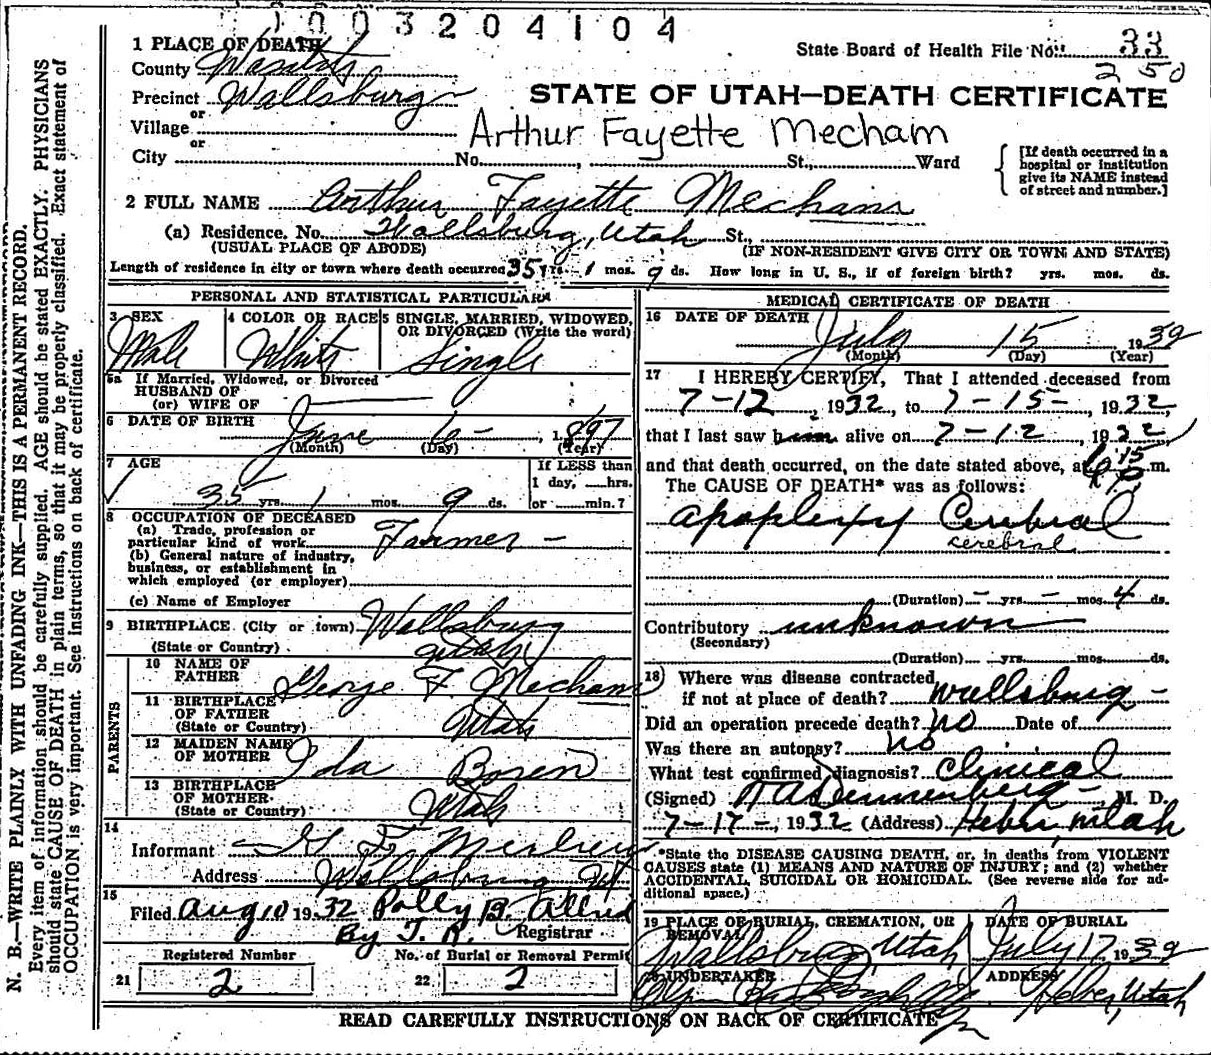 1003204104
1 PLACE OF DEATH
State Board of Health File No. 33
County Wasatch
250
Precinct Wallsburg
STATE OF UTAH—DEATH CERTIFICATE
or
Village
Arthur Fayette Mecham
or
City No. , St., Ward
[If death occurred in a hospital or institution give its NAME instead of street and number.]
2 FULL NAME Arthur Fayette Mecham
(a) Residence. No. Wallsburg, Utah St.,
(USUAL PLACE OF ABODE) (IF NON-RESIDENT GIVE CITY OR TOWN AND STATE)
Length of residence in city or town where death occurred 35 yrs. 1 mos. 9 ds. How long in U. S., if of foreign birth? yrs. mos. ds.
PERSONAL AND STATISTICAL PARTICULARS
3 SEX 4 COLOR OR RACE 5 SINGLE, MARRIED, WIDOWED,
OR DIVORCED (Write the word)
Male White Single
5a If Married, Widowed, or Divorced
HUSBAND OF
(or) WIFE OF
6 DATE OF BIRTH June 6- , 1897
(Month) (Day) (Year)
7 AGE If LESS than
1 day, hrs.
35 yrs. 1 mos. 9 ds. or min.?
8 OCCUPATION OF DECEASED
(a) Trade, profession or
particular kind of work Farmer -
(b) General nature of industry,
business, or establishment in
which employed (or employer)
(c) Name of Employer
9 BIRTHPLACE (City or town) Wallsburg
(State or Country) Utah
PARENTS
10 NAME OF
FATHER George F. Mecham
11 BIRTHPLACE
OF FATHER
(State or Country) Utah
12 MAIDEN NAME
OF MOTHER Ida Boren
13 BIRTHPLACE
OF MOTHER
(State or Country) Utah
14
Informant G F
Address Wallsburg
15
Filed Aug 10 1932 Polly B. Allred
By T. R. Registrar
Registered Number No. of Burial or Removal Permit
21 2 22 2
MEDICAL CERTIFICATE OF DEATH
16 DATE OF DEATH
July 15 1932
(Month) (Day) (Year)
17 I HEREBY CERTIFY, That I attended deceased from
7-12 , 1932, to 7-15- , 1932,
that I last saw him alive on 7-12 , 1932
and that death occurred, on the date stated above, at 6:15 P.m.
The CAUSE OF DEATH* was as follows:
apoplexy Cerebral
cerebral
(Duration) - yrs. - mos. 4 ds.
Contributory unknown
(Secondary)
(Duration) yrs. mos. ds.
18) Where was disease contracted
if not at place of death? Wallsburg -
Did an operation precede death? no Date of
Was there an autopsy? no
What test confirmed diagnosis? Clinical
(Signed) M. D.
7-17-, 1932 (Address) Heber, Utah
*State the DISEASE CAUSING DEATH, or, in deaths from VIOLENT
CAUSES state (1) MEANS AND NATURE OF INJURY; and (2) whether
ACCIDENTAL, SUICIDAL OR HOMICIDAL. (See reverse side for ad-
ditional space.)
19 PLACE OF BURIAL, CREMATION, OR
REMOVAL DATE OF BURIAL
Wallsburg, Utah July 17 1932
20 UNDERTAKER ADDRESS
Heber, Utah
READ CAREFULLY INSTRUCTIONS ON BACK OF CERTIFICATE
N. B.—WRITE PLAINLY WITH UNFADING INK—THIS IS A PERMANENT RECORD.
Every item of information should be carefully supplied. AGE should be stated EXACTLY. PHYSICIANS
should state CAUSE OF DEATH in plain terms, so that it may be properly classified. Exact statement of
OCCUPATION is very important. See instructions on back of certificate.